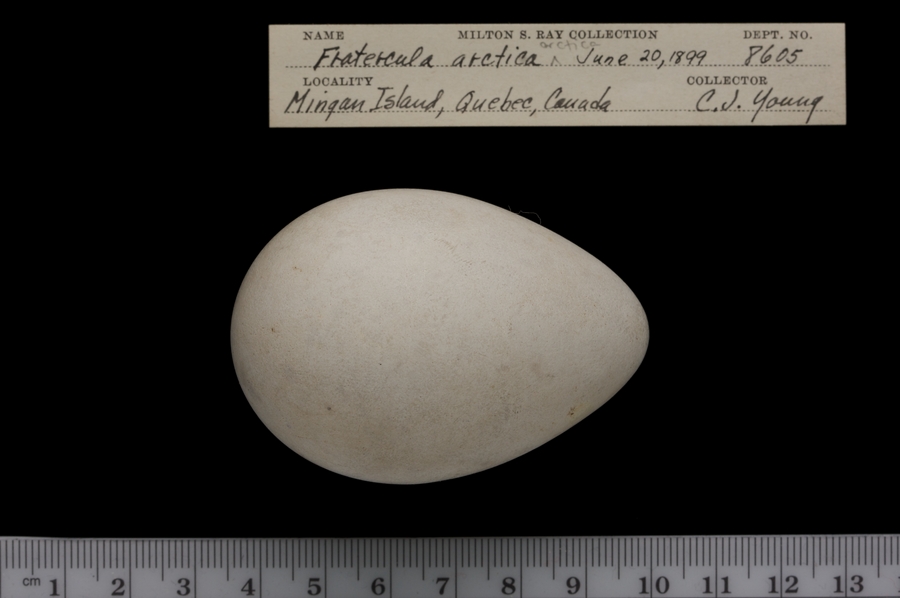 NAME MILTON S. RAY COLLECTION DEPT. NO.
Fratercula arctica ^ arctica June 20, 1899 8605
LOCALITY COLLECTOR
Mingan Island, Quebec, Canada C. J. Young
cm 1 2 3 4 5 6 7 8 9 10 11 12 13